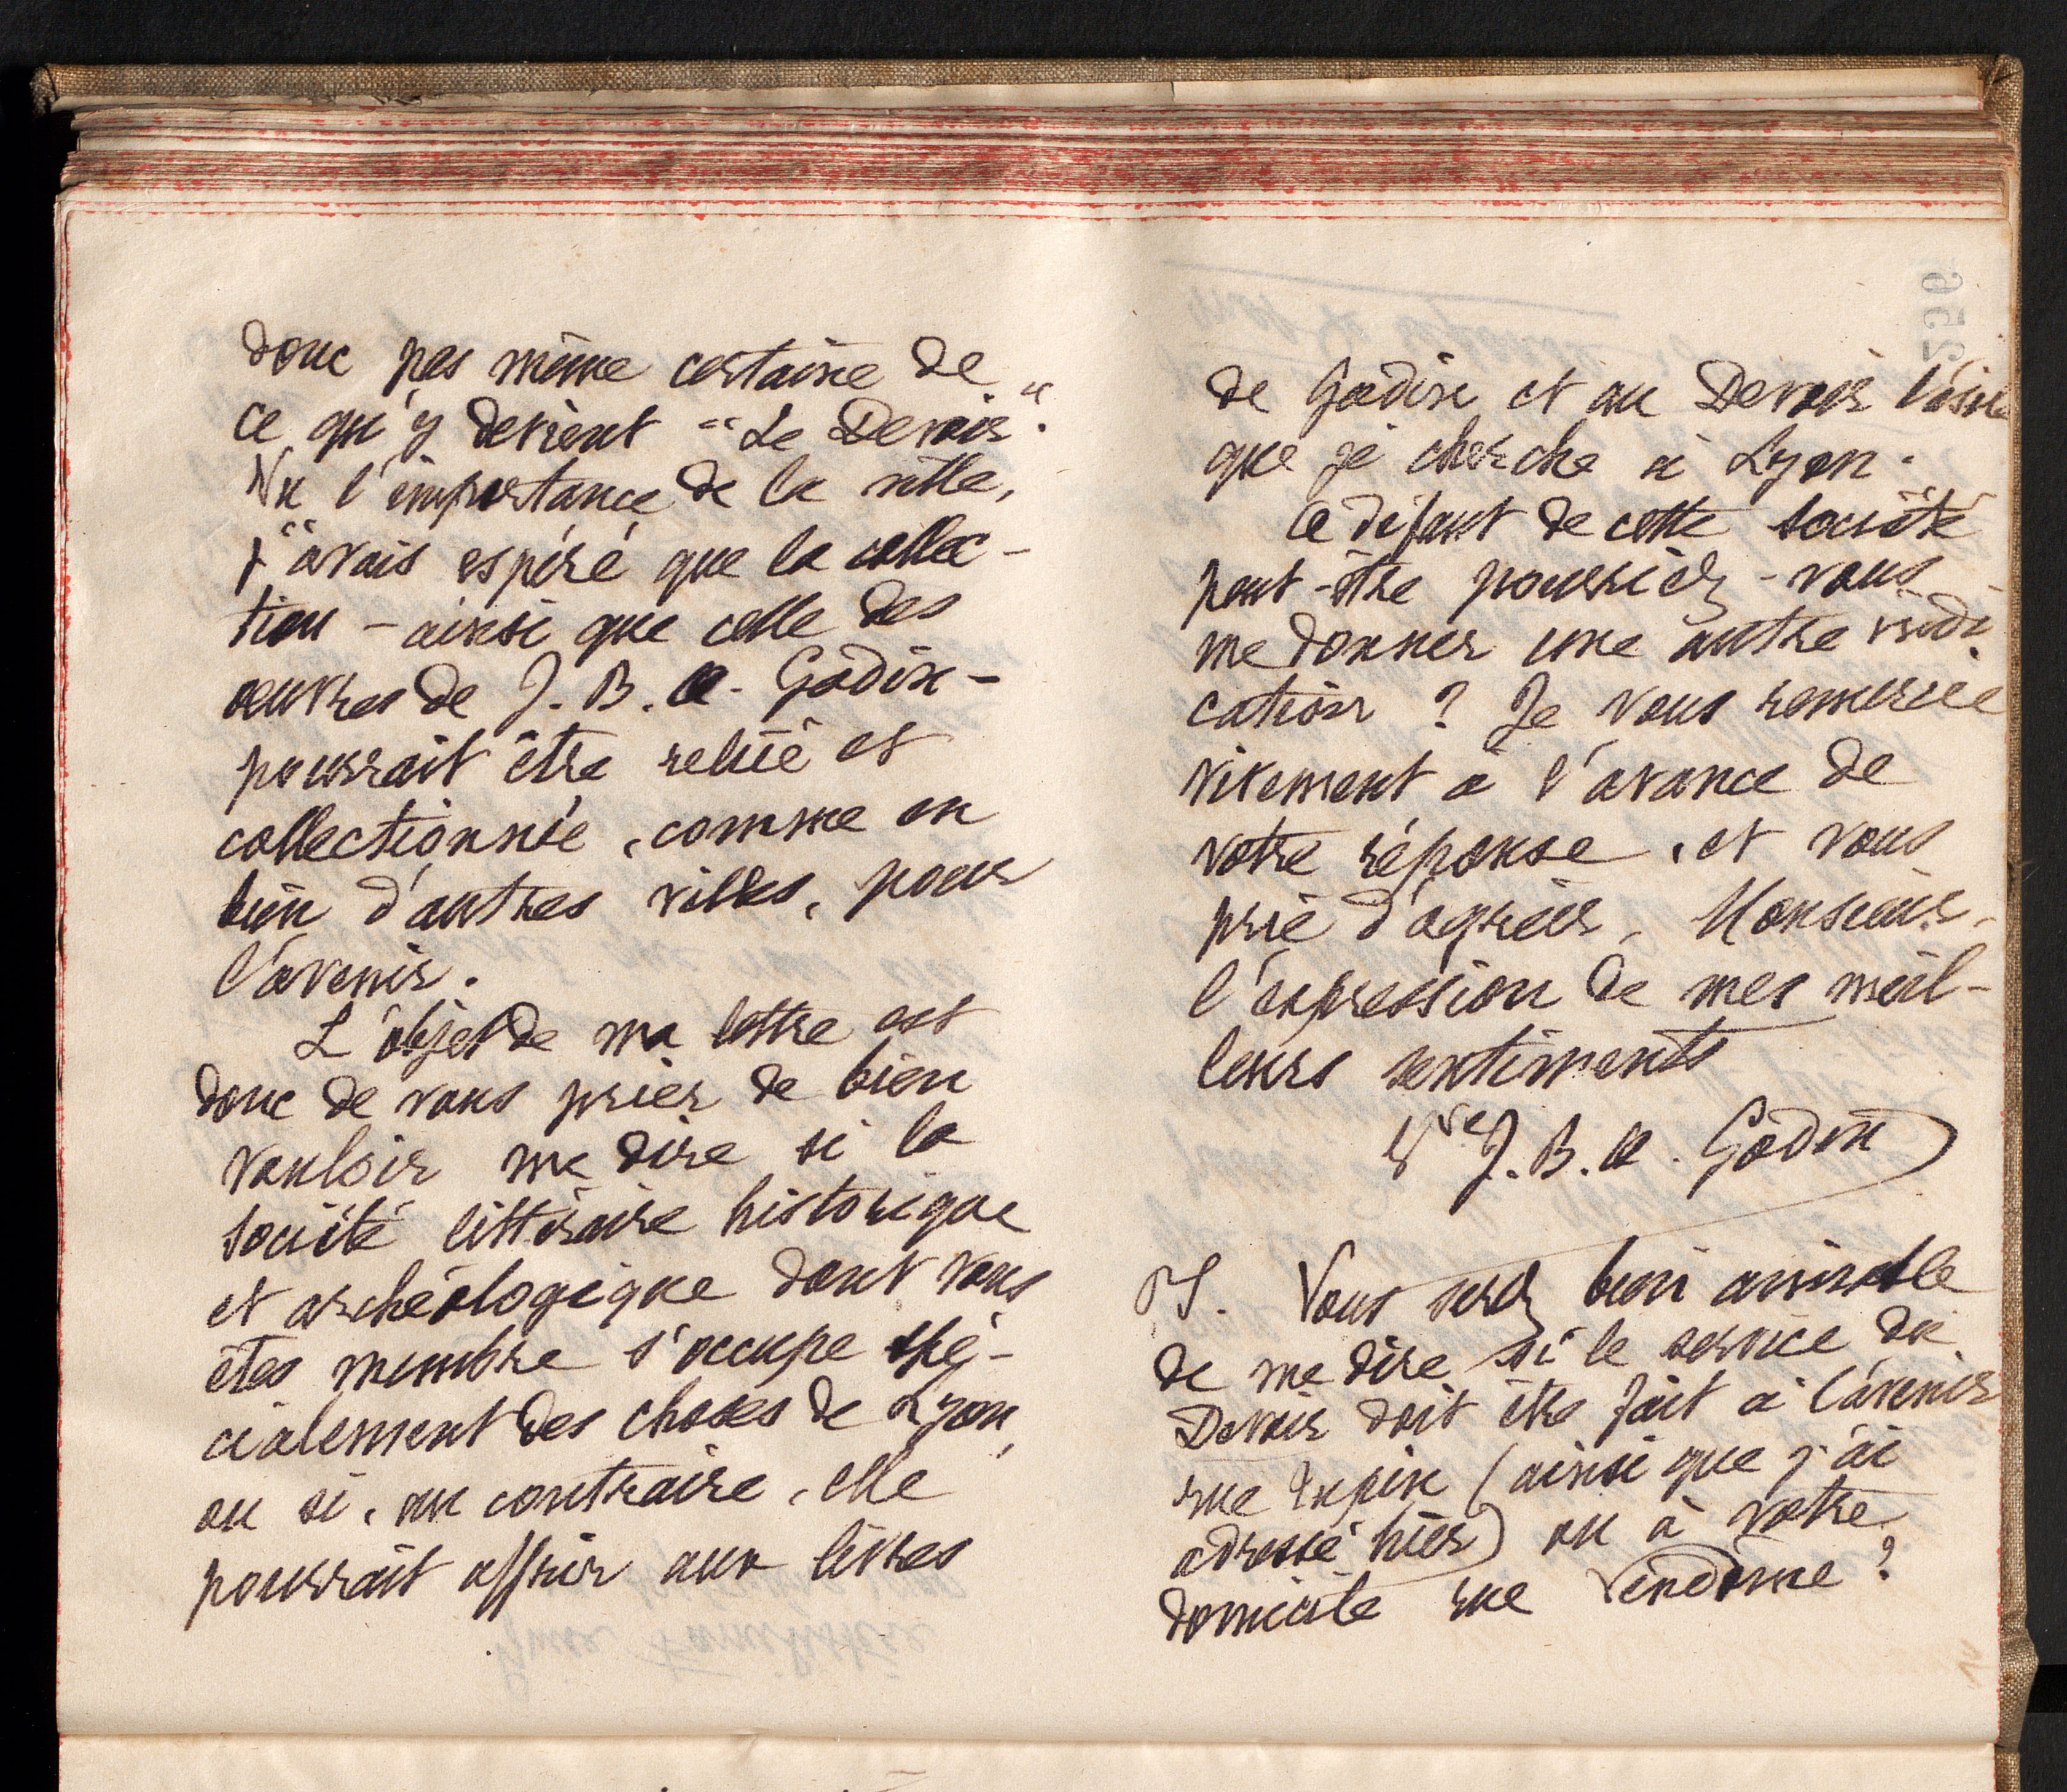 donc pas même certaine de
ce qu'y devient "Le Devoir".
Vu l'importance de la ville,
j'avais espéré que la collec-
tion - ainsi que celle des
œuvres de J. B. A. Godin -
pourrait être reliée et
collectionnée, comme en
bien d'autres villes, pour
l'avenir.
L'objet de ma lettre est
donc de vous prier de bien
vouloir me dire si la
société littéraire historique
et archéologique dont vous
êtes membre s'occupe spé-
cialement des choses de Lyon,
ou si, au contraire, elle
pourrait offrir aux livres
de Godin et au Devoir l'asile
que je cherche à Lyon.
A défaut de cette société
peut-être pourriez-vous
me donner une autre indi-
cation ? Je vous remercie
vivement à l'avance de
votre réponse, et vous
prie d'agréer, Monsieur,
l'expression de mes meil-
leurs sentiments
Vve J. B. A. Godin
PS. Vous serez bien aimable
de me dire si le service du
Devoir doit être fait à l'avenir
rue Tupin (ainsi que j'ai
adressé hier) ou à votre
domicile rue Vendôme ?